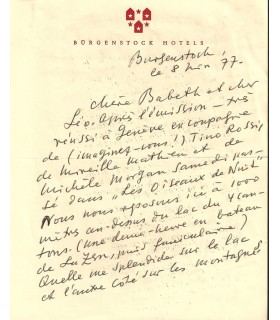 BÜRGENSTOCK HOTELS
Burgenstock,
le 8 Juin 77.
Chère Babeth et cher
Léo. Après l'émission – très
réussi à Genève en compagnie
de (imaginez-vous!) Tino Rossi,
de Mireille Mathieu et de
Michèle Morgan samedi pas-
sé dans "Les Oiseaux de Nuit"
Nous nous reposons ici à 1000
mètres au-dessus du lac du 4 can-
tons. (une demi-heure en bateau
de Luzern, puis funiculaire)
Quelle vue splendide sur le lac
et l'autre côté sur les montagnes